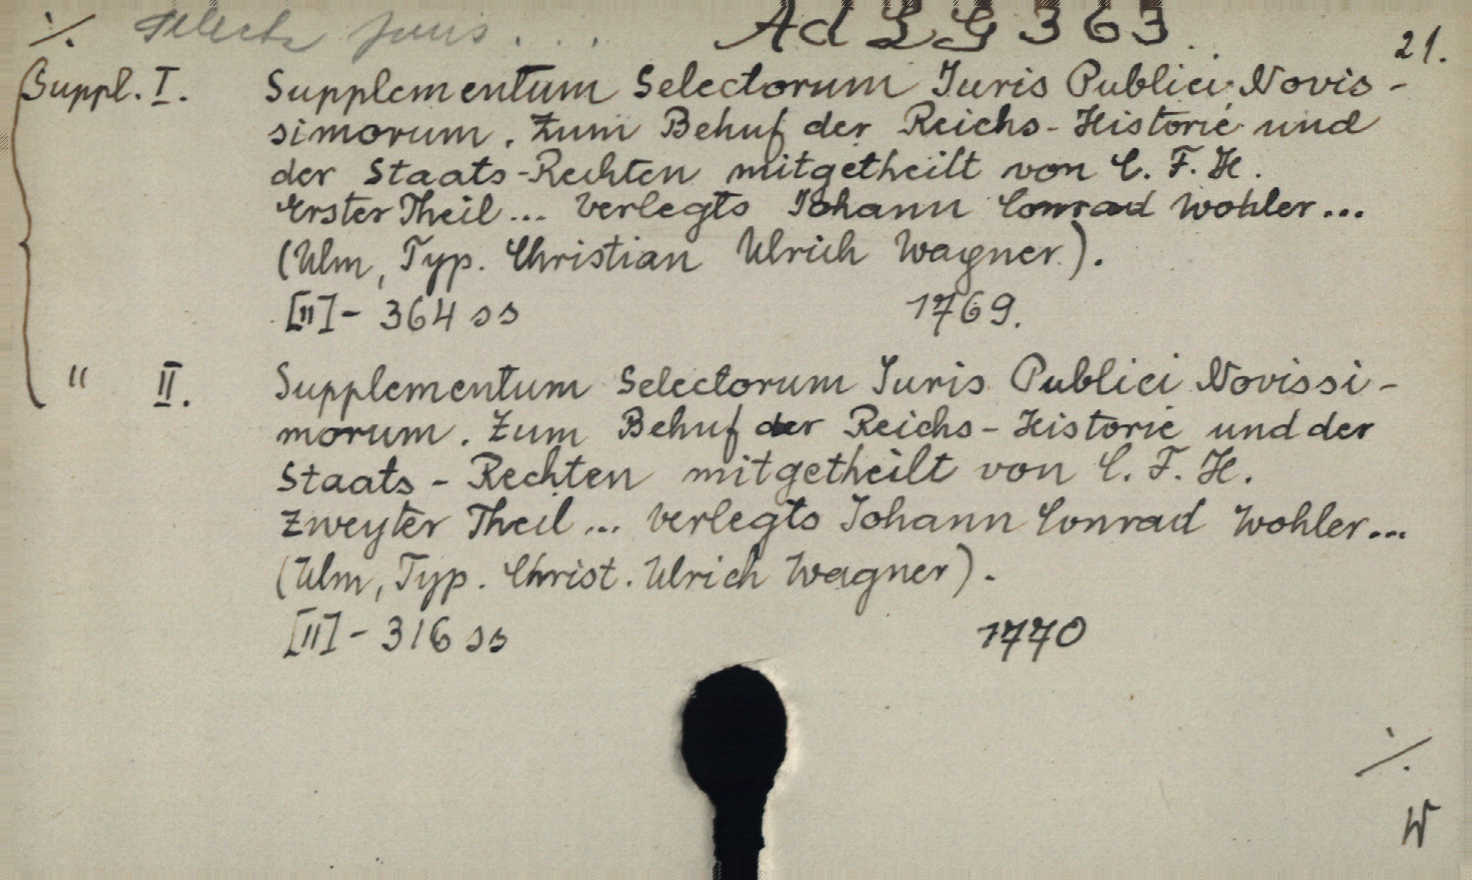 ·/. Selecta juris... Ad LG 363.
21.
Suppl. I. Supplementum Selectorum Iuris Publici Novis-
simorum. Zum Behuf der Reichs-Historie und
der Staats-Rechten mitgetheilt von C. F. H.
Erster Theil... verlegts Iohann Conrad Wohler...
(Ulm, Typ. Christian Ulrich Wagner).
[II]- 364 ss 1769.
" II. Supplementum Selectorum Iuris Publici Novissi-
morum. Zum Behuf der Reichs-Historie und der
Staats-Rechten mitgetheilt von C. F. H.
Zweyter Theil... verlegts Iohann Conrad Wohler...
(Ulm, Typ. Christ. Ulrich Wagner).
[II]- 316 ss 1770
·/.
W